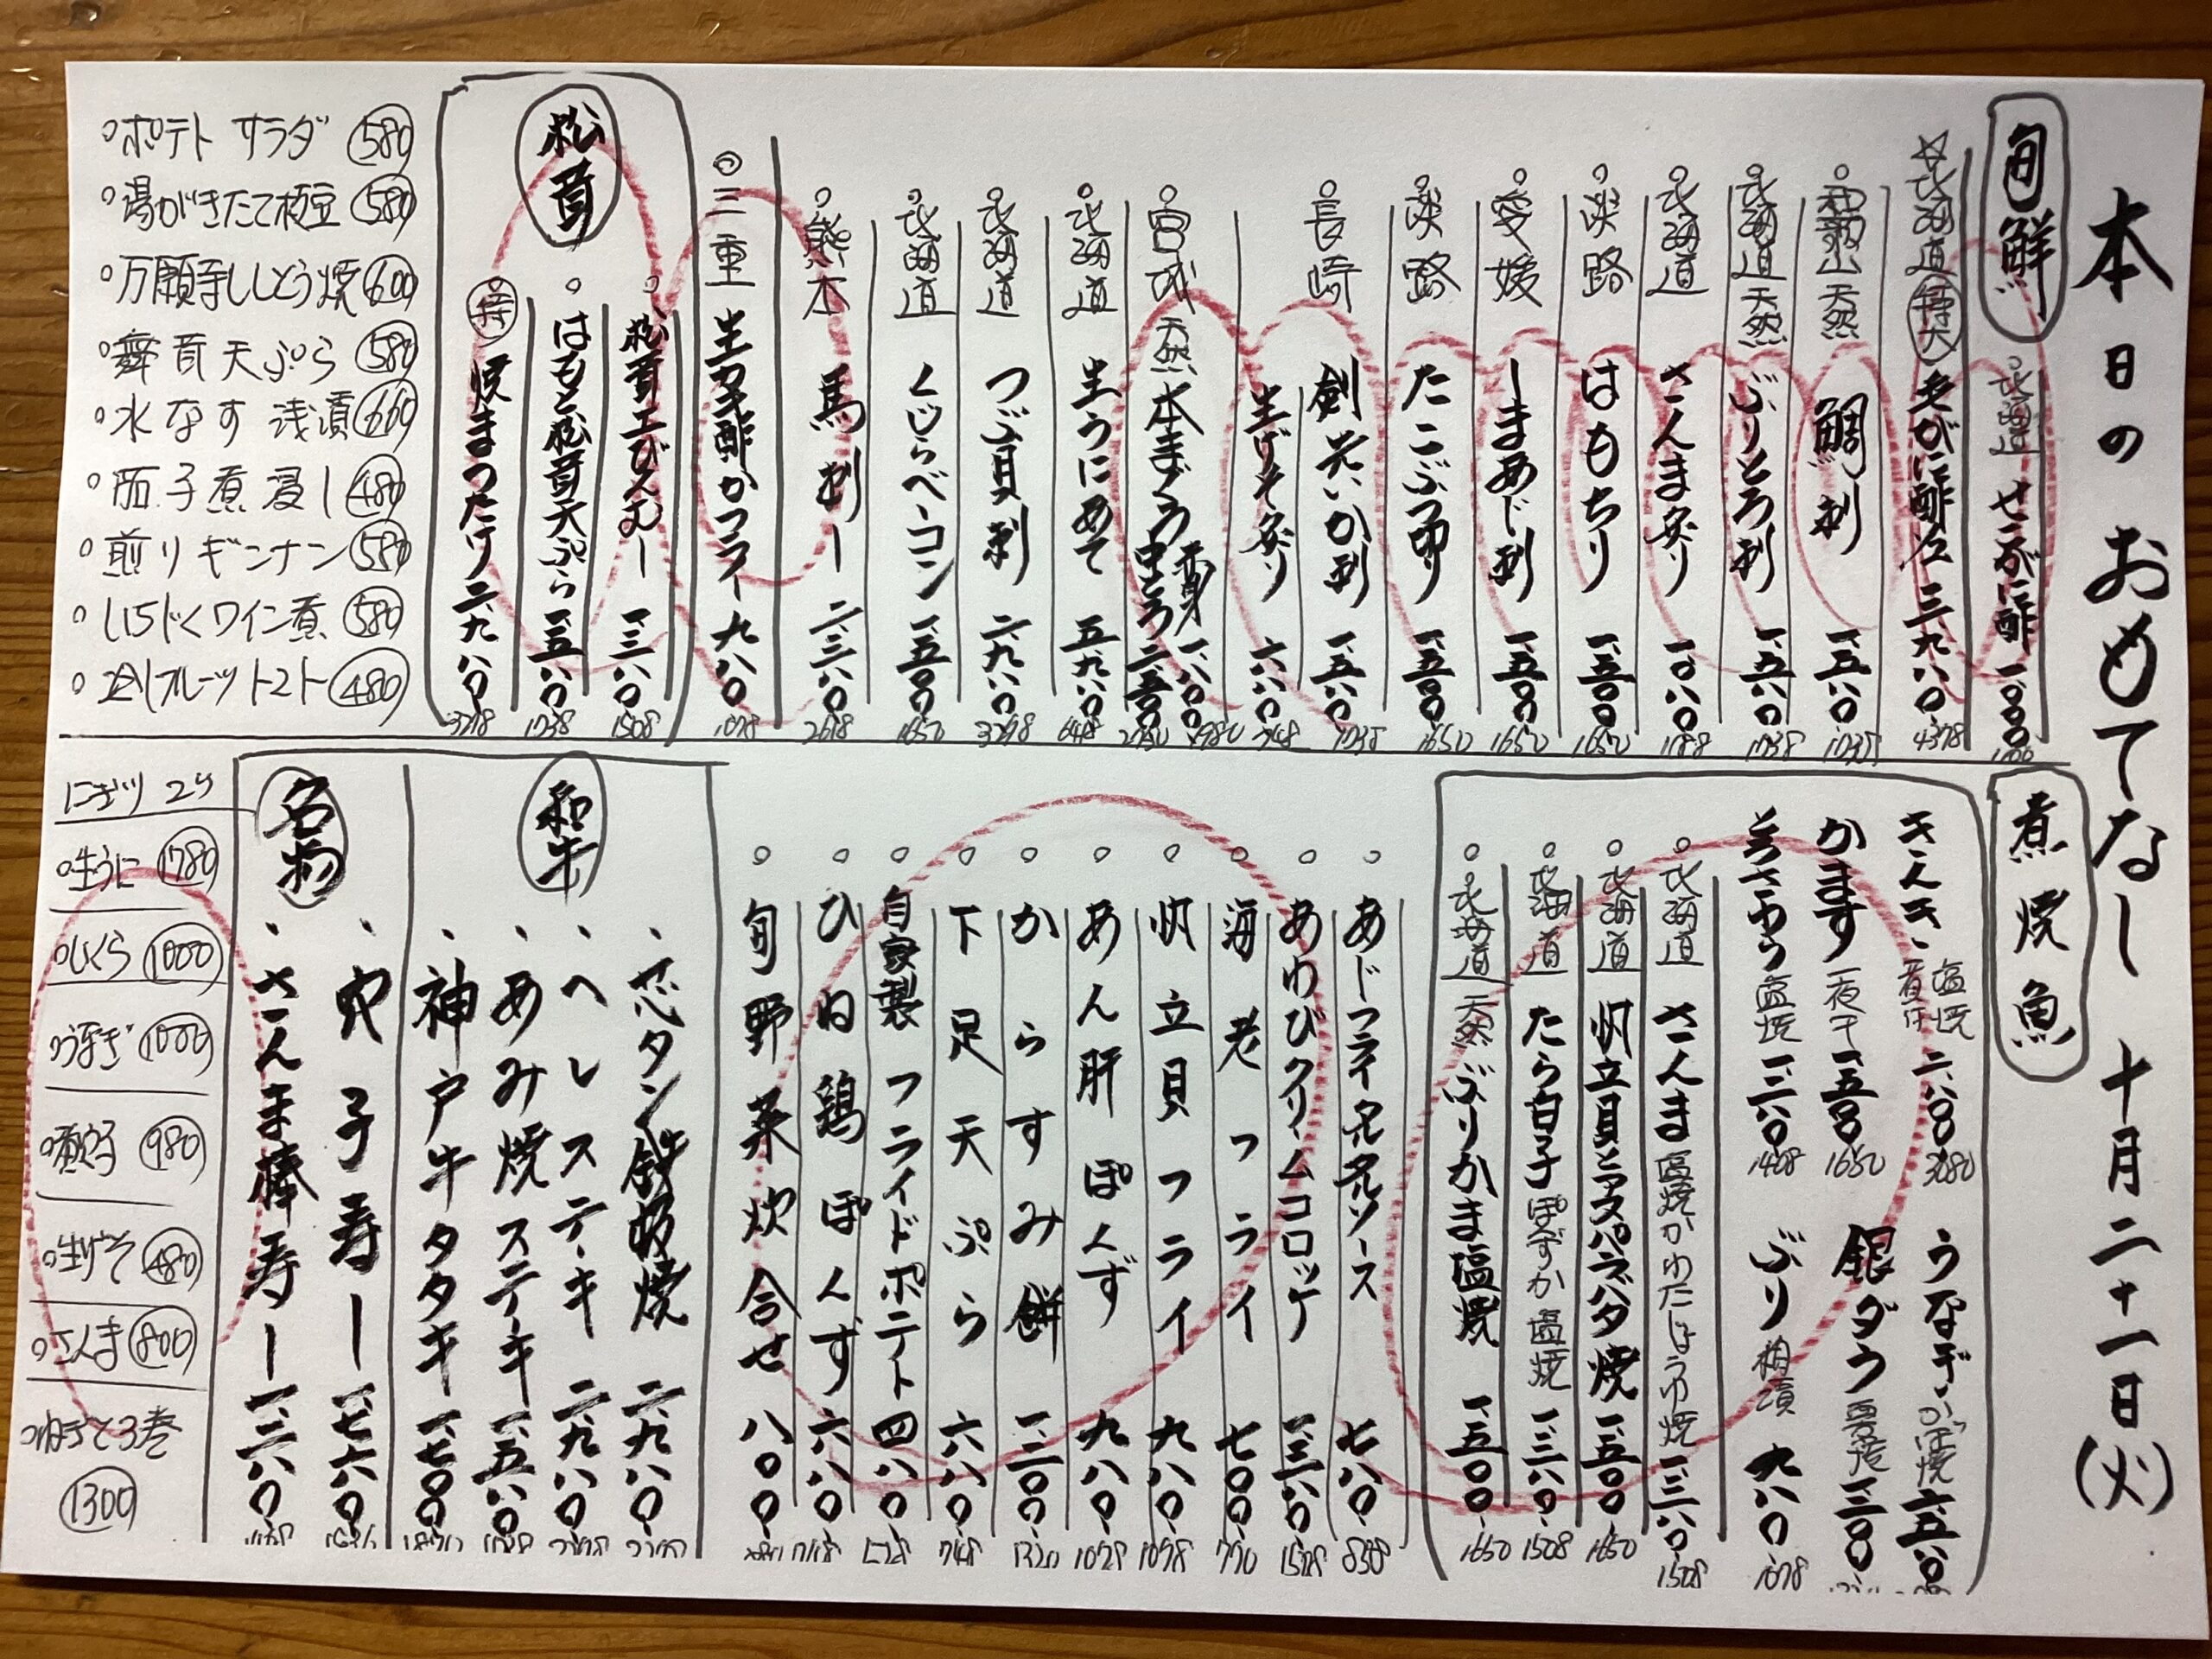 本日のおもてなし 十月二十一日(火)
旬鮮
北海道 せこがに酢 一、〇〇〇
☆北海道 特大 毛がに酢 三、九八〇 4378
和歌山 天然 鯛刺 一、五八〇
北海道 天然 ぶりとろ刺 一、五八〇 1738
北海道 さんま炙り 一、〇八〇 1188
淡路 はもちり 一、五〇〇 1650
愛媛 しまあじ刺 一、五〇〇 1650
淡路 たこぶつ切り 一、五〇〇 1650
長崎 剣先いか刺 一、五八〇 1738
生げそ炙り 六八〇 748
宮城 天然 本まぐろ 赤身 一、八〇〇 1980
中とろ 二、五〇〇 2750
北海道 生うにめて 五、九八〇
北海道 つぶ貝刺 二、九八〇 3278
北海道 くじらベーコン 一、五〇〇 1650
熊本 馬刺し 二、三八〇 2618
三重 生カキ酢かフライ 九八〇 1078
松茸
松茸土びんむし 一、三八〇 1508
はもと松茸天ぷら 一、五八〇 1738
特 焼まつたけ 二、九八〇 3278
ポテトサラダ 580
湯がきたて枝豆 580
万願寺ししとう焼 600
舞茸天ぷら 580
水なす 浅漬 660
茄子煮浸し 480
煎りギンナン 580
いちじくワイン煮 580
フルーツトマト 480
煮焼魚
きんき 塩焼 煮付 二、八〇〇 3080
かます 一夜干 一、五〇〇 1650
さわら 塩焼 一、二八〇 1408
うなぎ かば焼 二、五八〇
銀ダラ 西京焼 一、三〇〇
ぶり 粕漬 九八〇 1078
北海道 さんま 塩焼かわたしょうゆ焼 一、三八〇 1508
北海道 帆立貝とアスパラバタ焼 一、五〇〇 1650
北海道 たら白子 ぽんずか塩焼 一、三八〇 1508
北海道 天然 ぶりかま塩焼 一、五〇〇 1650
あじフライタルタルソース 七八〇 858
あわびクリームコロッケ 一、三八〇 1508
海老フライ 七〇〇 770
帆立貝フライ 九八〇 1078
あん肝ぽんず 九八〇 1078
からすみ餅 一、二〇〇 1320
下足天ぷら 六八〇 748
自家製フライドポテト 四八〇 528
ひね鶏ぽんず 六八〇
旬野菜炊合せ 八〇〇
和牛
芯タン鉄板焼 二、九八〇
ヘレステーキ 二、九八〇
あみ焼ステーキ 一、五八〇
神戸牛タタキ 一、七〇〇
名物
穴子寿し 一、七六〇
さんま棒寿し 一、三八〇
にぎり 2ヶ
生うに 1780
いくら 1000
うなぎ 1000
煮穴子 980
生げそ 480
さんま 800
ねぎとろ巻 1300